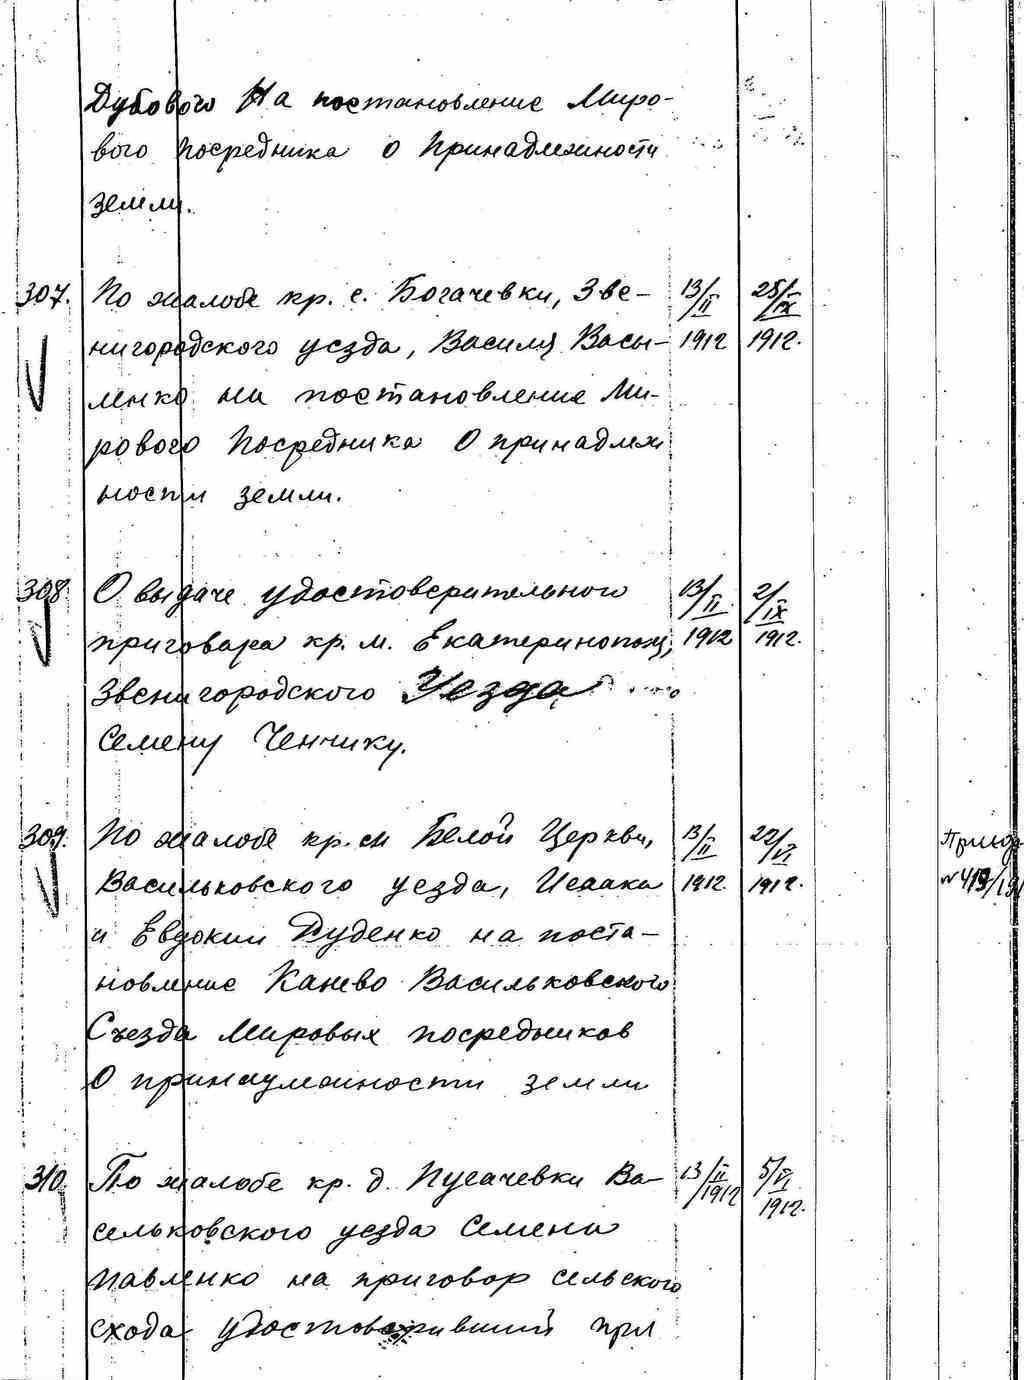 Дубового На постановление Миро-
вого Посредника о Принадлежности
земли.
307. По жалобе кр. с. Богачевки, Зве- 13/II 25/IX
нигородского уезда, Василия Васы- 1912 1912.
ленко на постановление Ми-
рового Посредника О принадлеж
ности земли.
308 О выдаче удостоверительного 13/II 2/IX
приговара кр. м. Екатеринополя, 1912 1912.
Звенигородского Уезда
Семену Ченчику.
309. По жалобе кр. м Белой Церкви, 13/II 22/VI
Васильковского уезда, Исаака 1912. 1912.
и Евдокии Дуденко на поста-
новление Канево Васильковского
Съезда Мировых посредников
О принадлежности земли
310 По жалобе кр. д. Пугачевки Ва- 13/II/1912 5/VI 1912.
сельковского уезда Семена
Павленко на приговор сельского
схода удостоверивший при